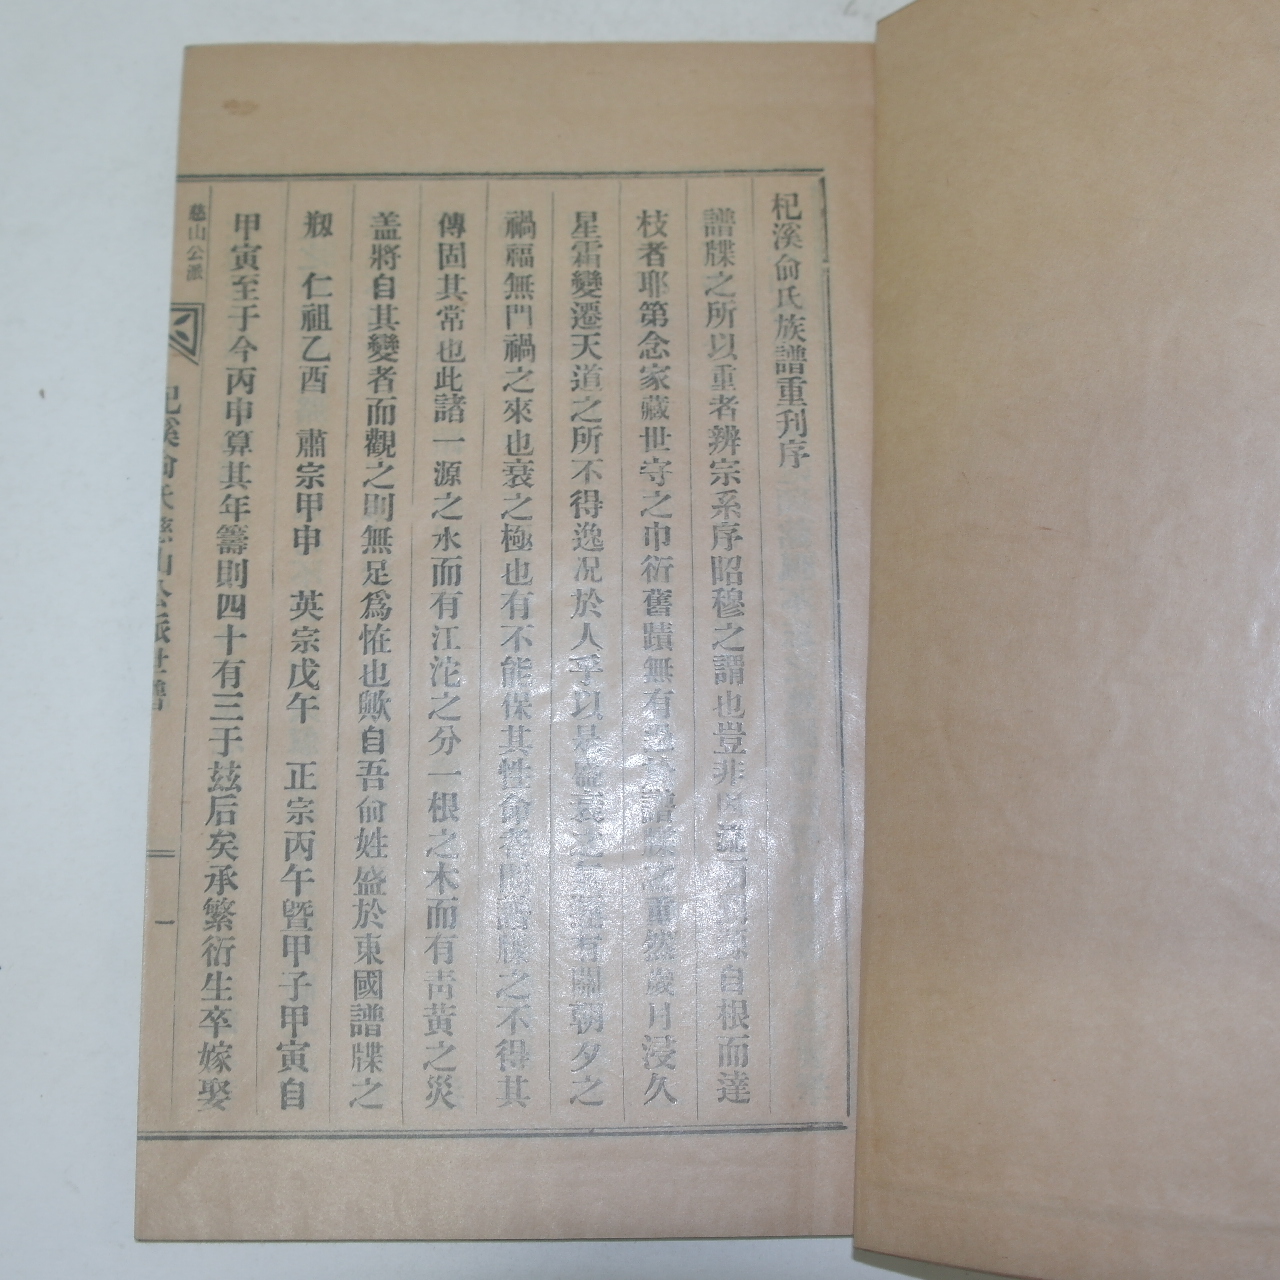 杞溪俞氏族譜重刊序
譜牒之所以重者辨宗系序昭穆之謂也豈非自根而達
枝者耶第念家藏世守之巾衍舊蹟無有譜牒之重然歲月浸久
星霜變遷天道之所不得逸况於人乎以是盛衰之有關朝夕之
禍福無門禍之來也衰之極也有不能保其性命者則譜牒之不得其
傳固其常也此諸一源之水而有江沱之分一根之木而有靑黄之災
盖將自其變者而觀之則無足爲恠也歟自吾俞姓盛於東國譜牒之
剏 仁祖乙酉 肅宗甲申 英宗戊午 正宗丙午曁甲子甲寅自
甲寅至于今丙申算其年籌則四十有三于玆后矣承繁衍生卒嫁娶
慈山公派
杞溪俞氏慈山公派世譜
一